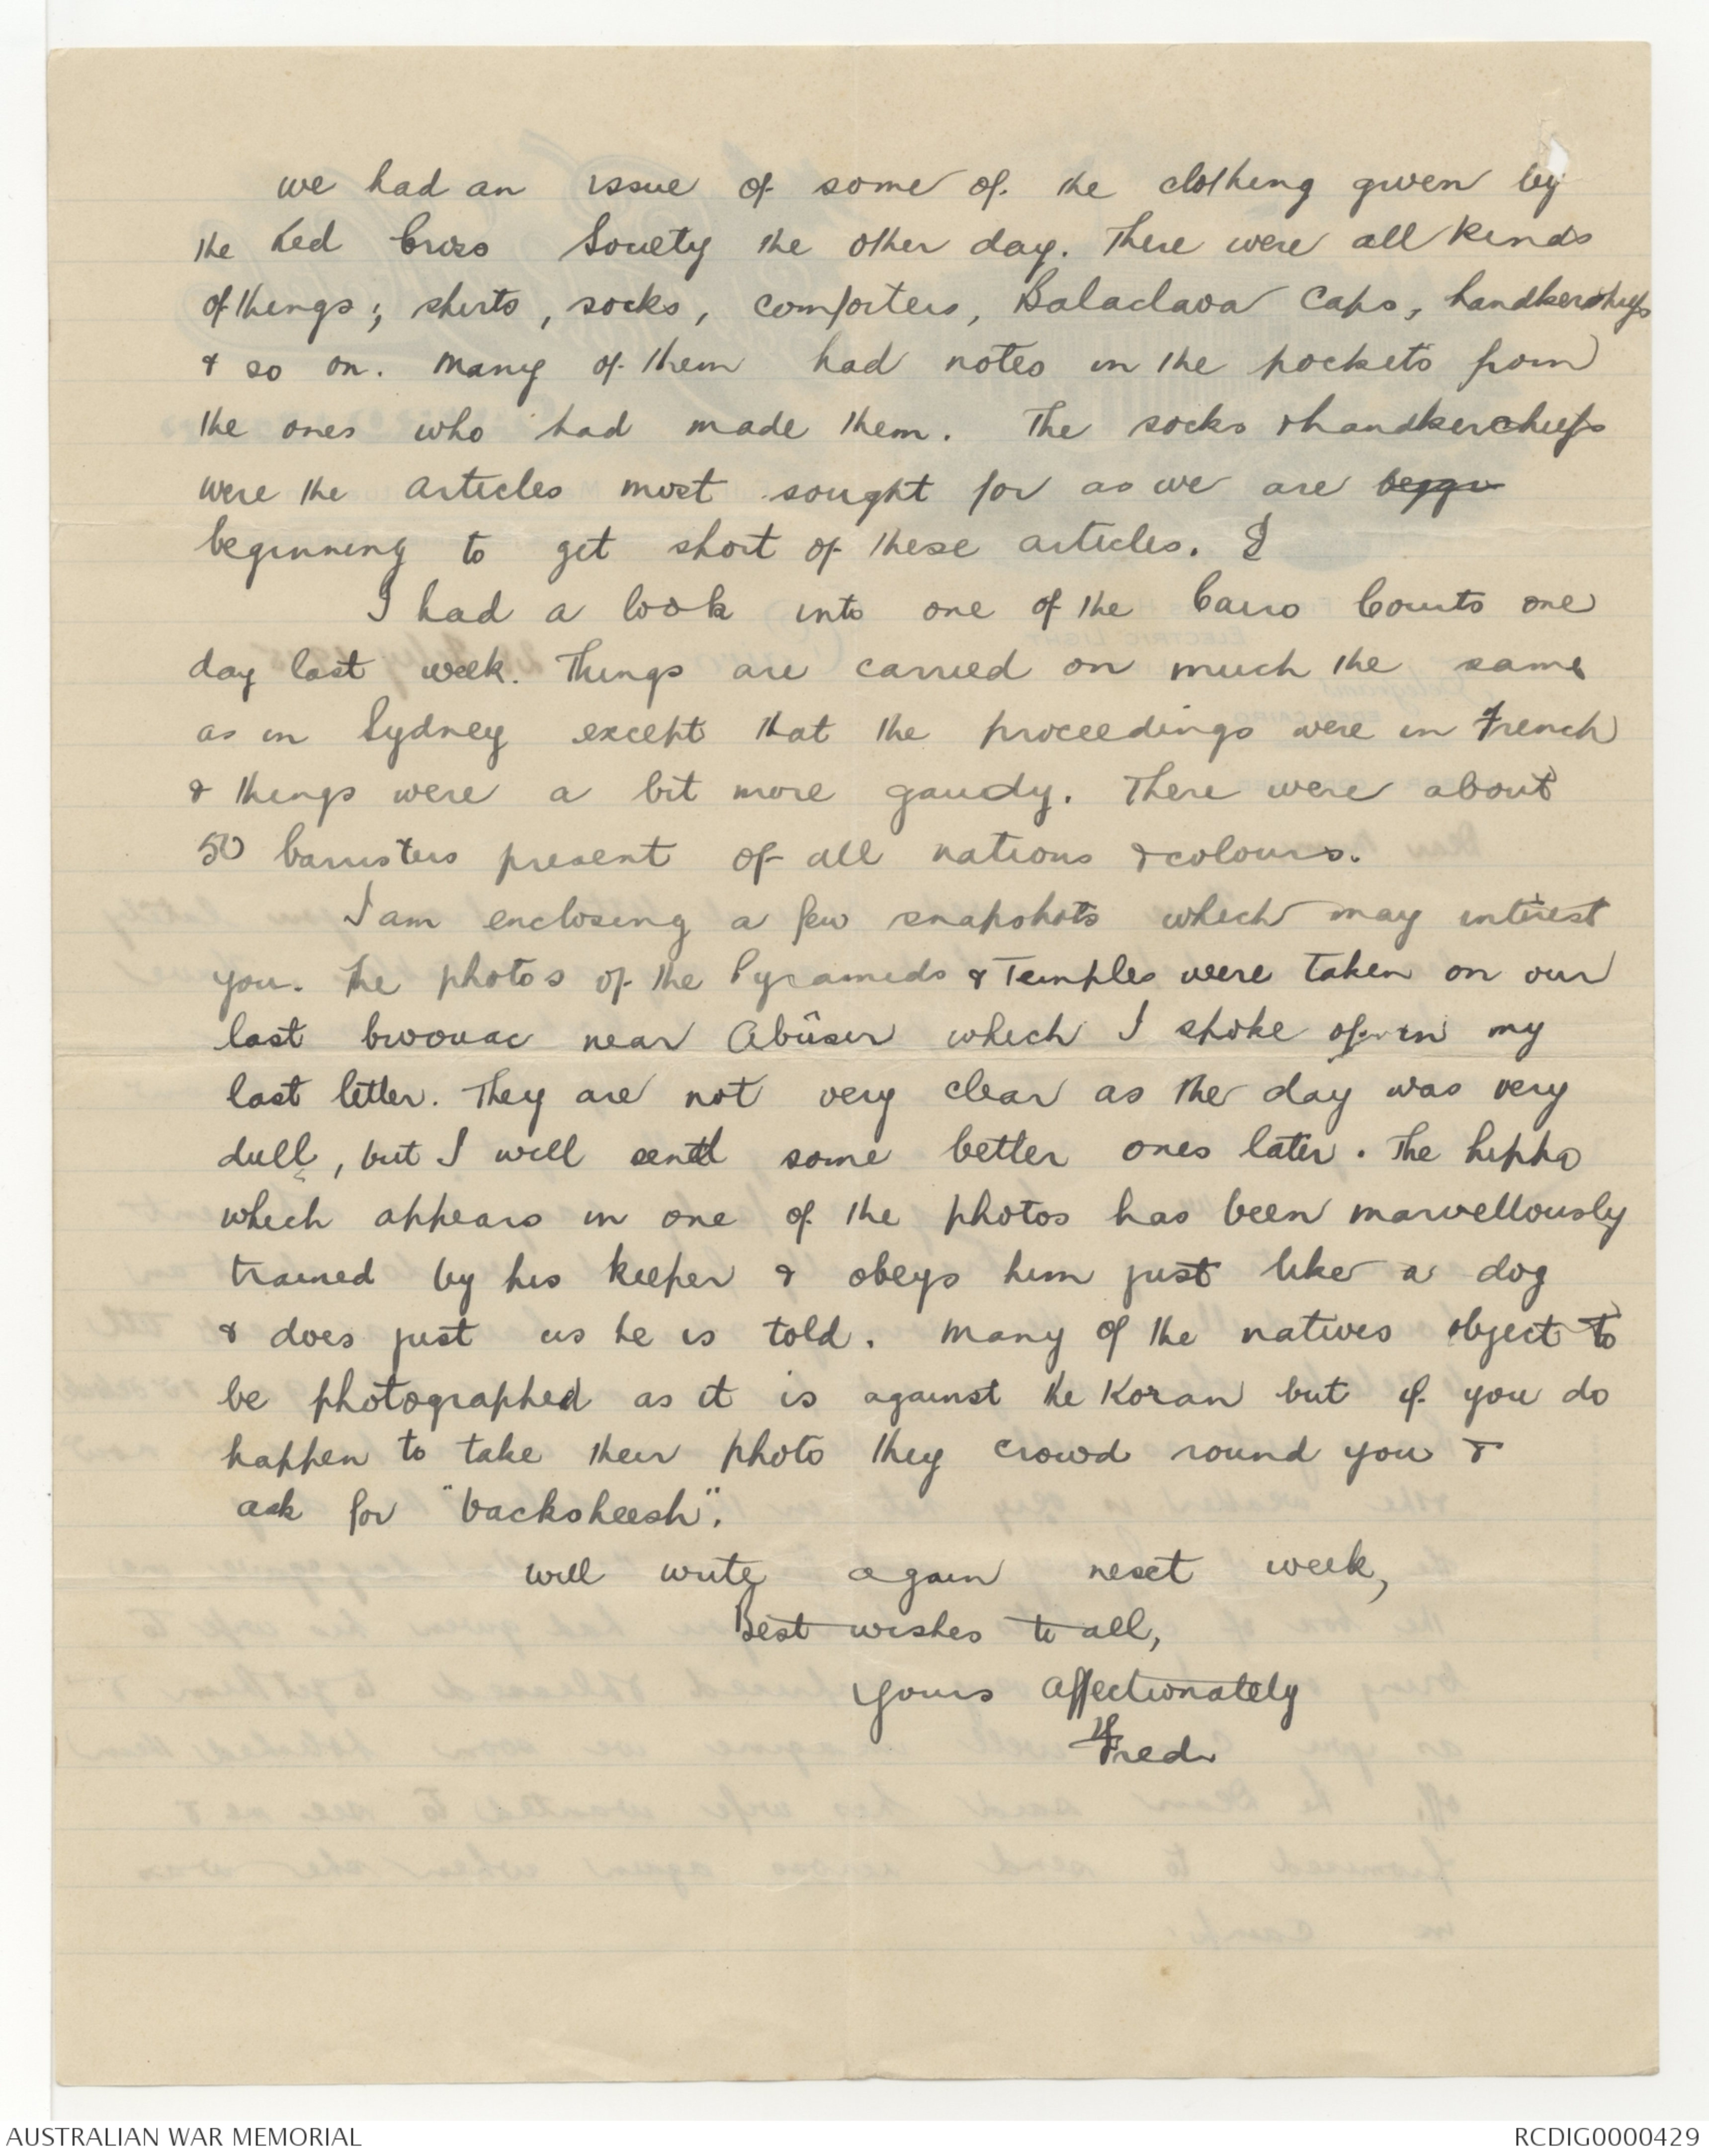 we had an issue of some of the clothing given by
the Red Cross Society the other day. There were all kinds
of things; shirts, socks, comforters, Balaclava Caps, handkerchiefs
& so on. Many of them had notes in the pockets from
the ones who had made them. The socks & handkerchiefs
were the articles most sought for as we are beggi
beginning to get short of these articles. I
I had a look into one of the Cairo Courts one
day last week. Things are carried on much the same
as in Sydney except that the proceedings were in French
& things were a bit more gaudy. There were about
50 barristers present of all nations & colours.
I am enclosing a few snapshots which may interest
you. The photos of the Pyramids & Temples were taken on our
last bivouac near Abûsir which I spoke of in my
last letter. They are not very clear as the day was very
dull, but I will send some better ones later. The hippo
which appears in one of the photos has been marvellously
trained by his keeper & obeys him just like a dog
& does just as he is told. Many of the natives object to
be photographed as it is against the Koran but if you do
happen to take their photo they crowd round you &
ask for "backsheesh".
Will write again next week,
Best wishes to all,
Yours affectionately
Fred
AUSTRALIAN WAR MEMORIAL
RCDIG0000429